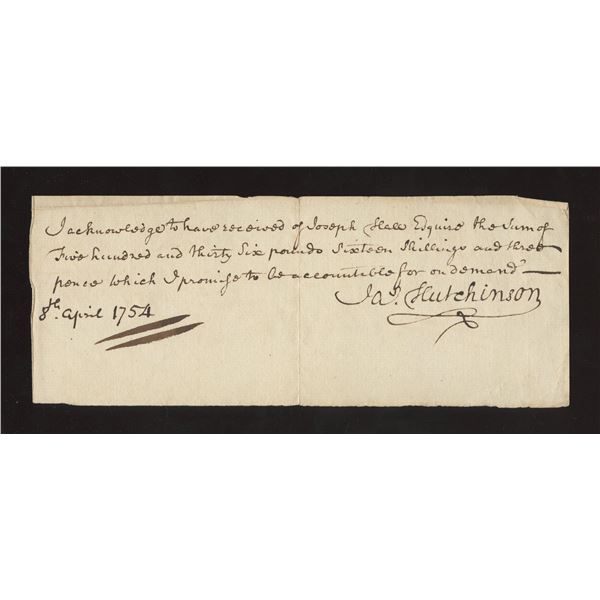 I acknowledge to have received of Joseph Hale Esquire the Sum of
Five hundred and thirty Six pounds Sixteen Shillings and three
pence which I promise to be accountible for on demand
Jas. Hutchinson
8th. April 1754